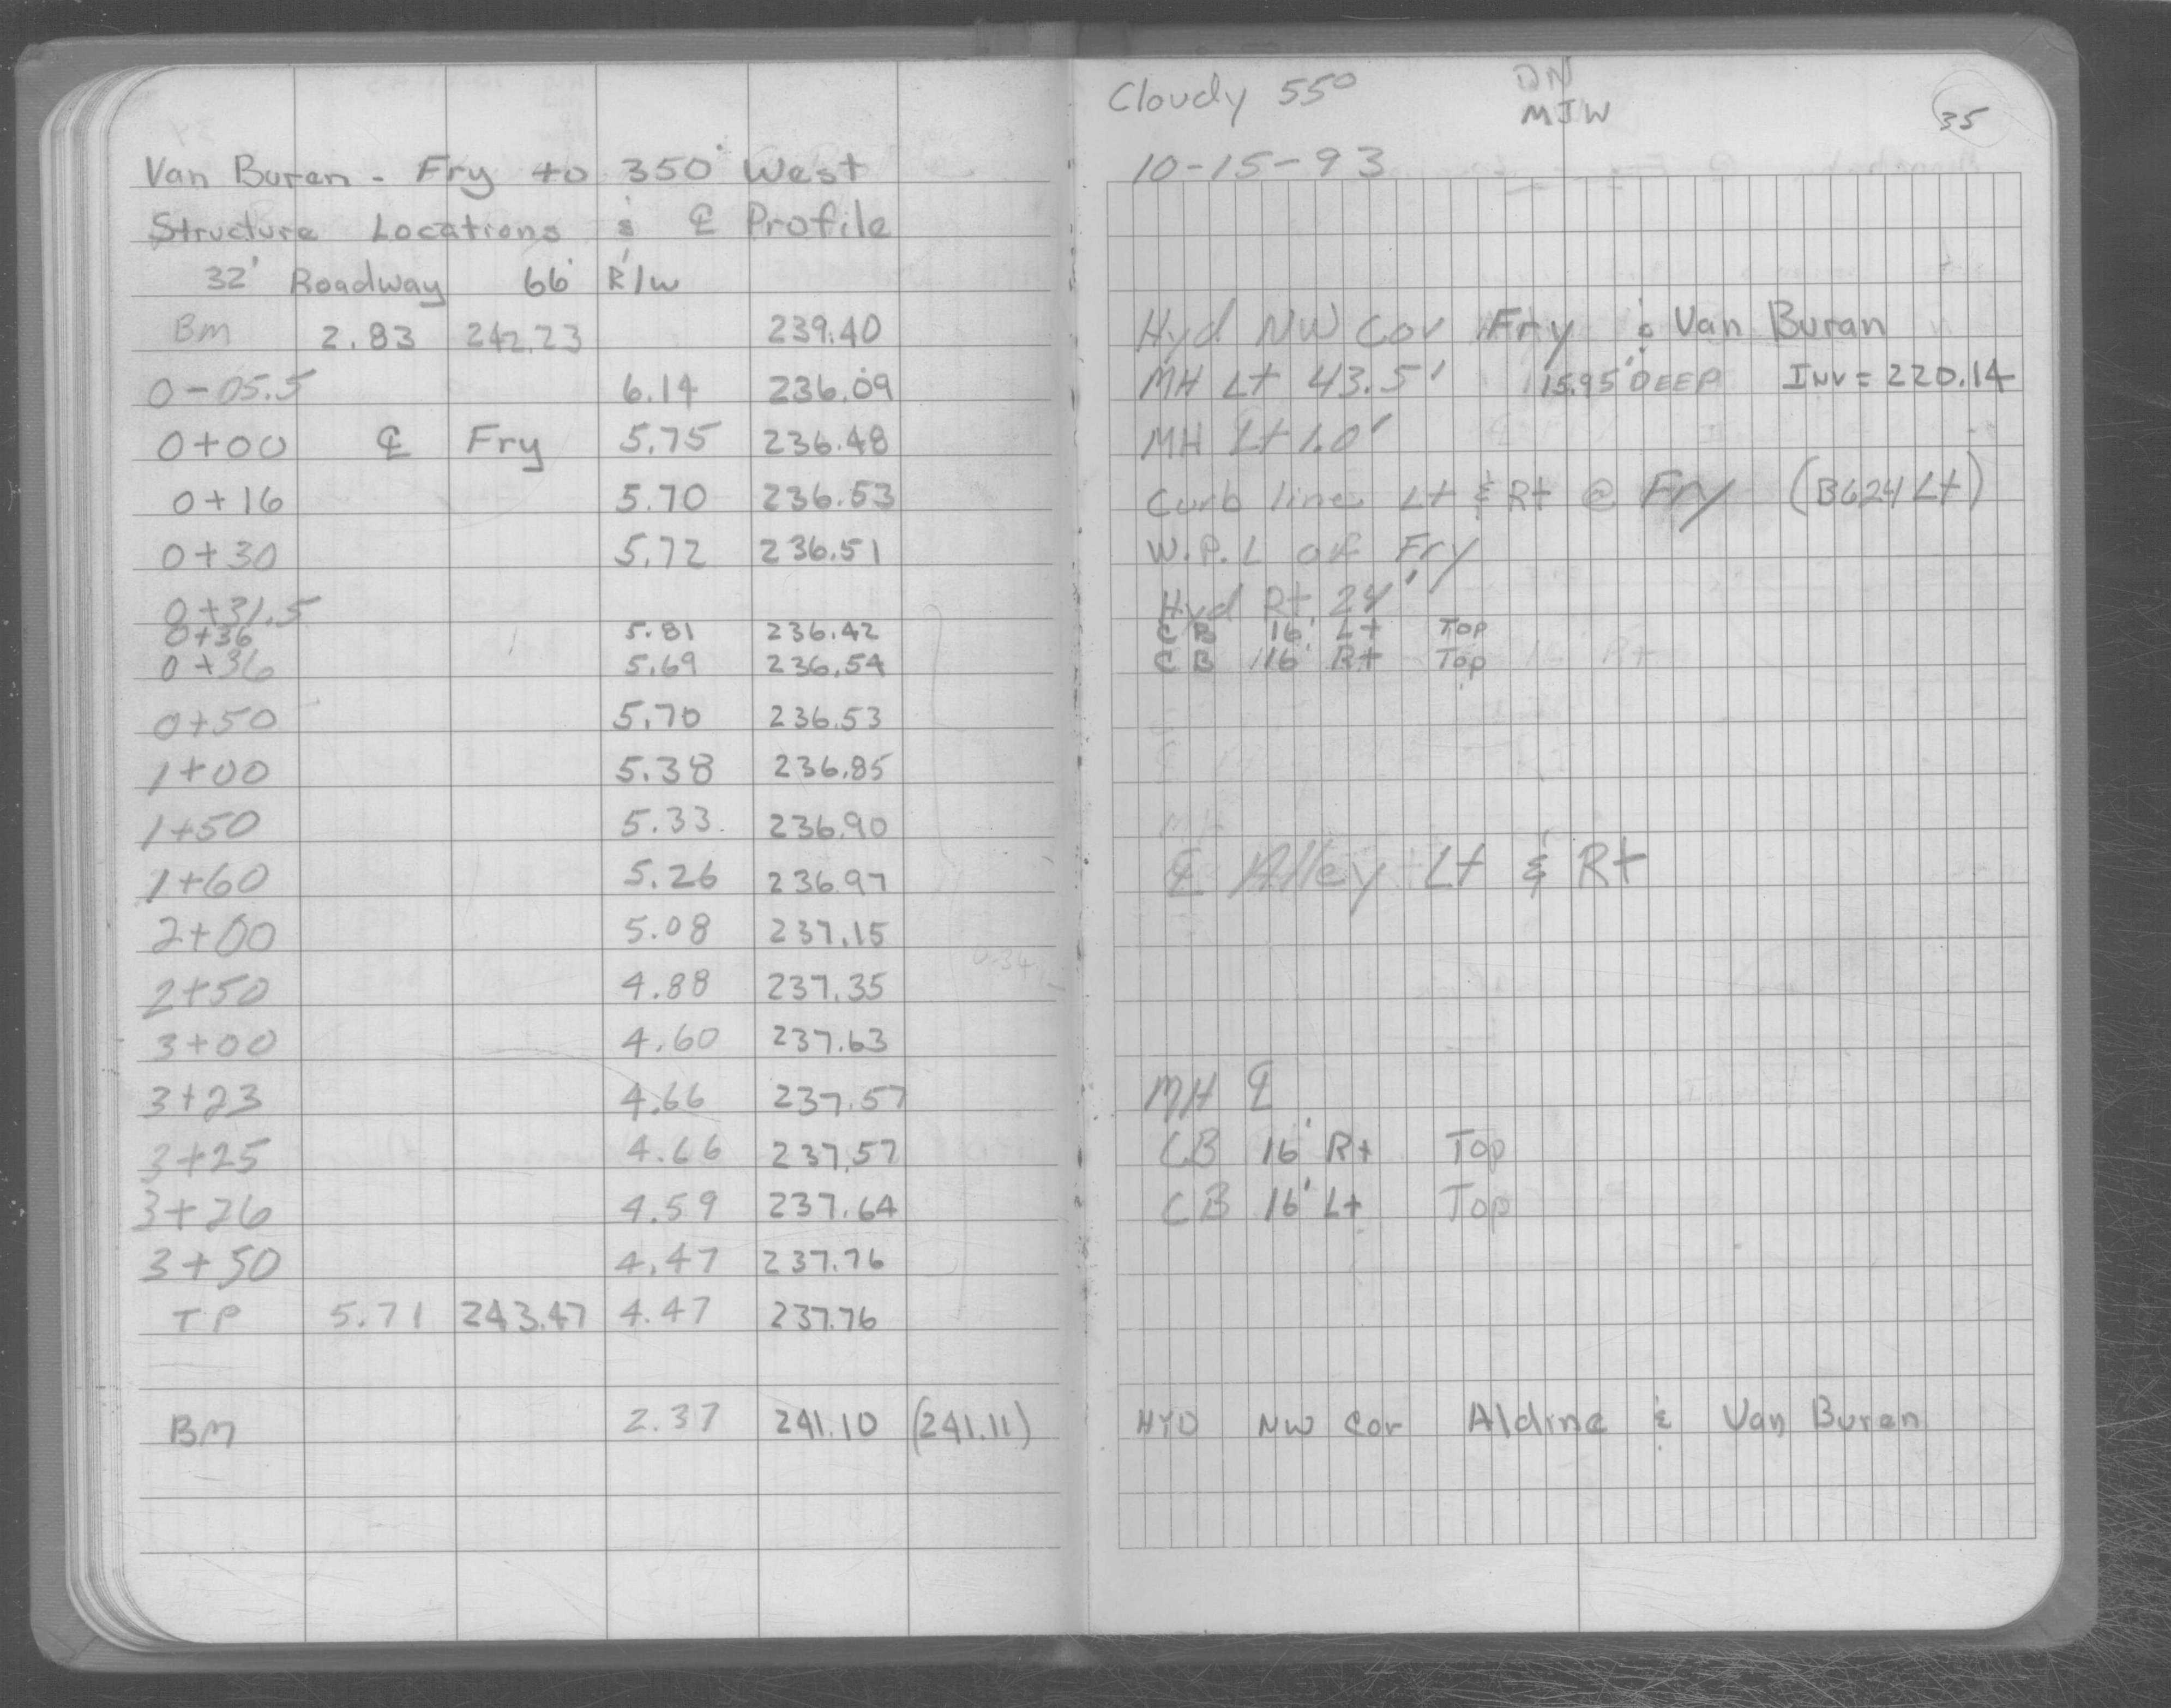 Van Buren - Fry to 350' West
Structure Locations & ℄ Profile
32' Roadway 66' R/W
BM 2.83 242.23 239.40
0-05.5 6.14 236.09
0+00 ℄ Fry 5.75 236.48
0+16 5.70 236.53
0+30 5.72 236.51
0+31.5
0+36 5.81 236.42
0+36 5.69 236.54
0+50 5.70 236.53
1+00 5.38 236.85
1+50 5.33 236.90
1+60 5.26 236.97
2+00 5.08 237.15
2+50 4.88 237.35
3+00 4.60 237.63
3+23 4.66 237.57
3+25 4.66 237.57
3+26 4.59 237.64
3+50 4.47 237.76
TP 5.71 243.47 4.47 237.76
BM 2.37 241.10 (241.11)
Cloudy 55° DN
MJW
35
10-15-93
Hyd NW Cor Fry & Van Buren
MH Lt 43.5' 15.95' DEEP Inv = 220.14
MH Lt 1.0'
Curb line Lt & Rt @ Fry (B624 Lt)
W.P.L of Fry
Hyd Rt 24'
CB 16' Lt Top
CB 16' Rt Top
℄ Alley Lt & Rt
MH ℄
CB 16' Rt Top
CB 16' Lt Top
HYD NW Cor Aldine & Van Buren